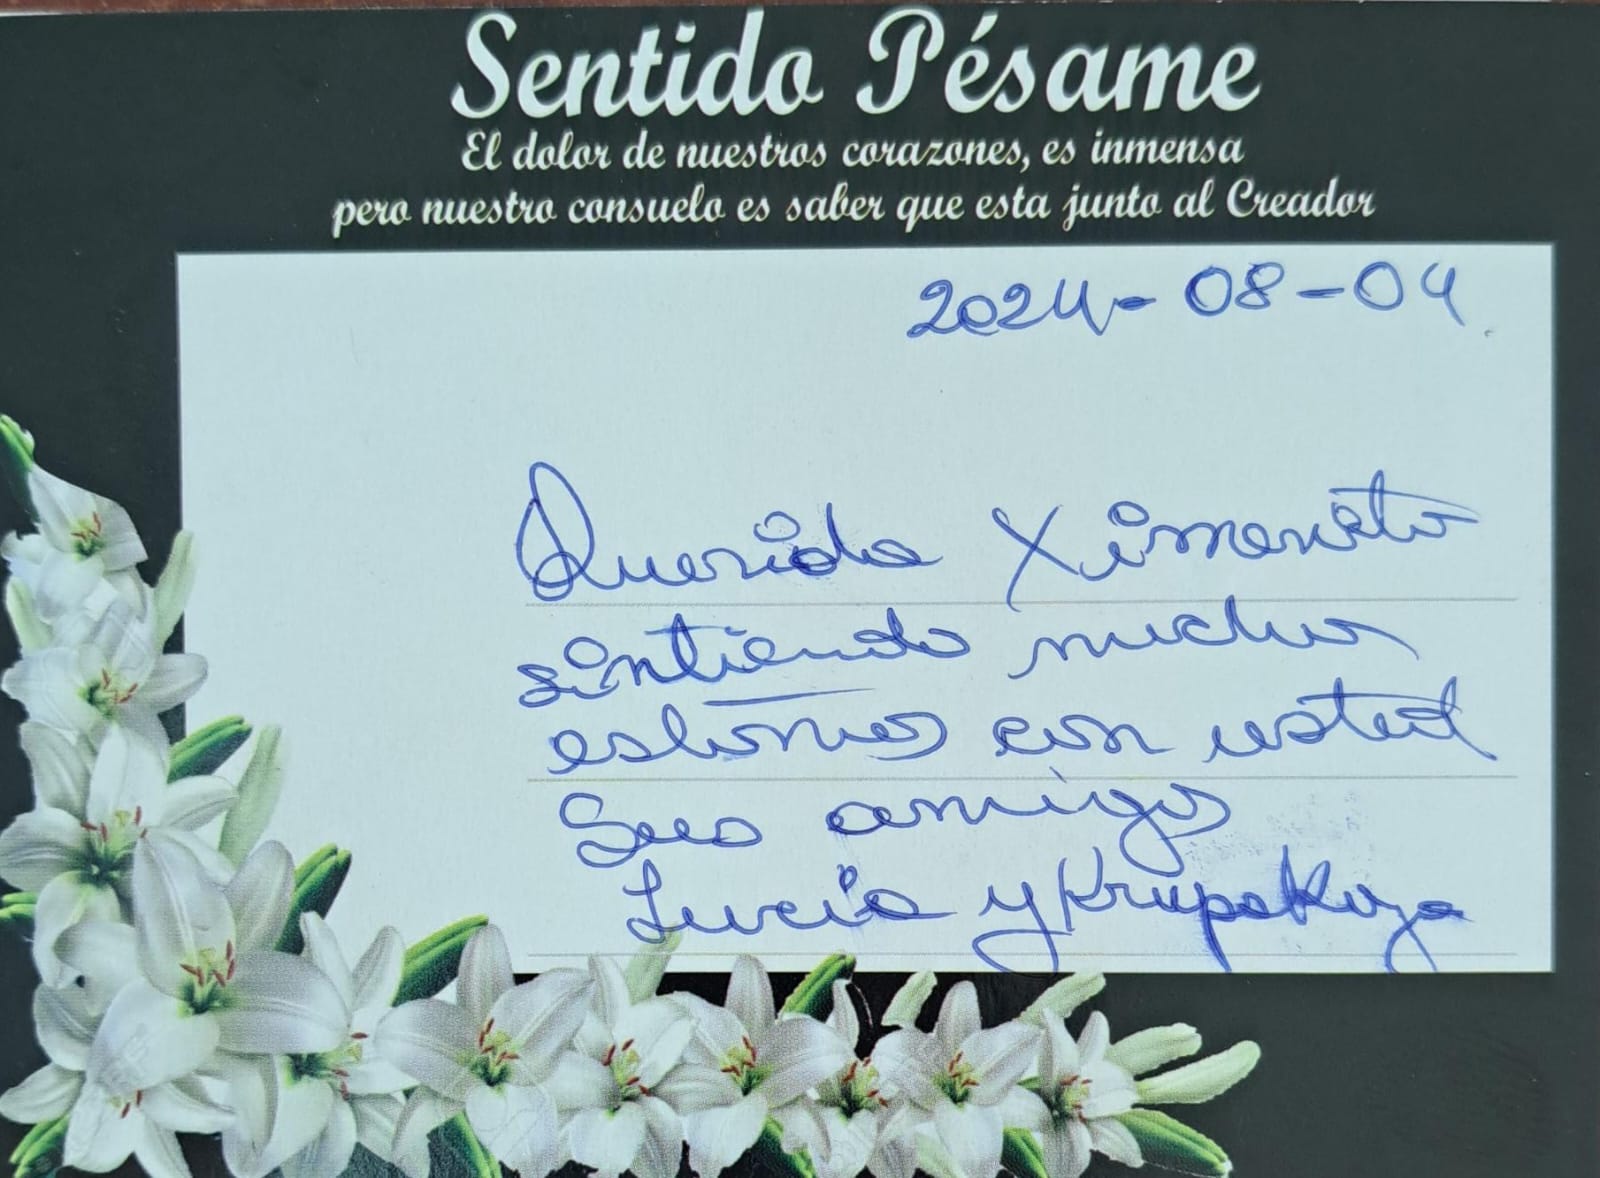 Sentido Pésame
El dolor de nuestros corazones, es inmensa
pero nuestro consuelo es saber que esta junto al Creador
2024-08-04
Querida Ximenita
sintiendo mucho
estamos con usted
Sus amigos
Lucía y